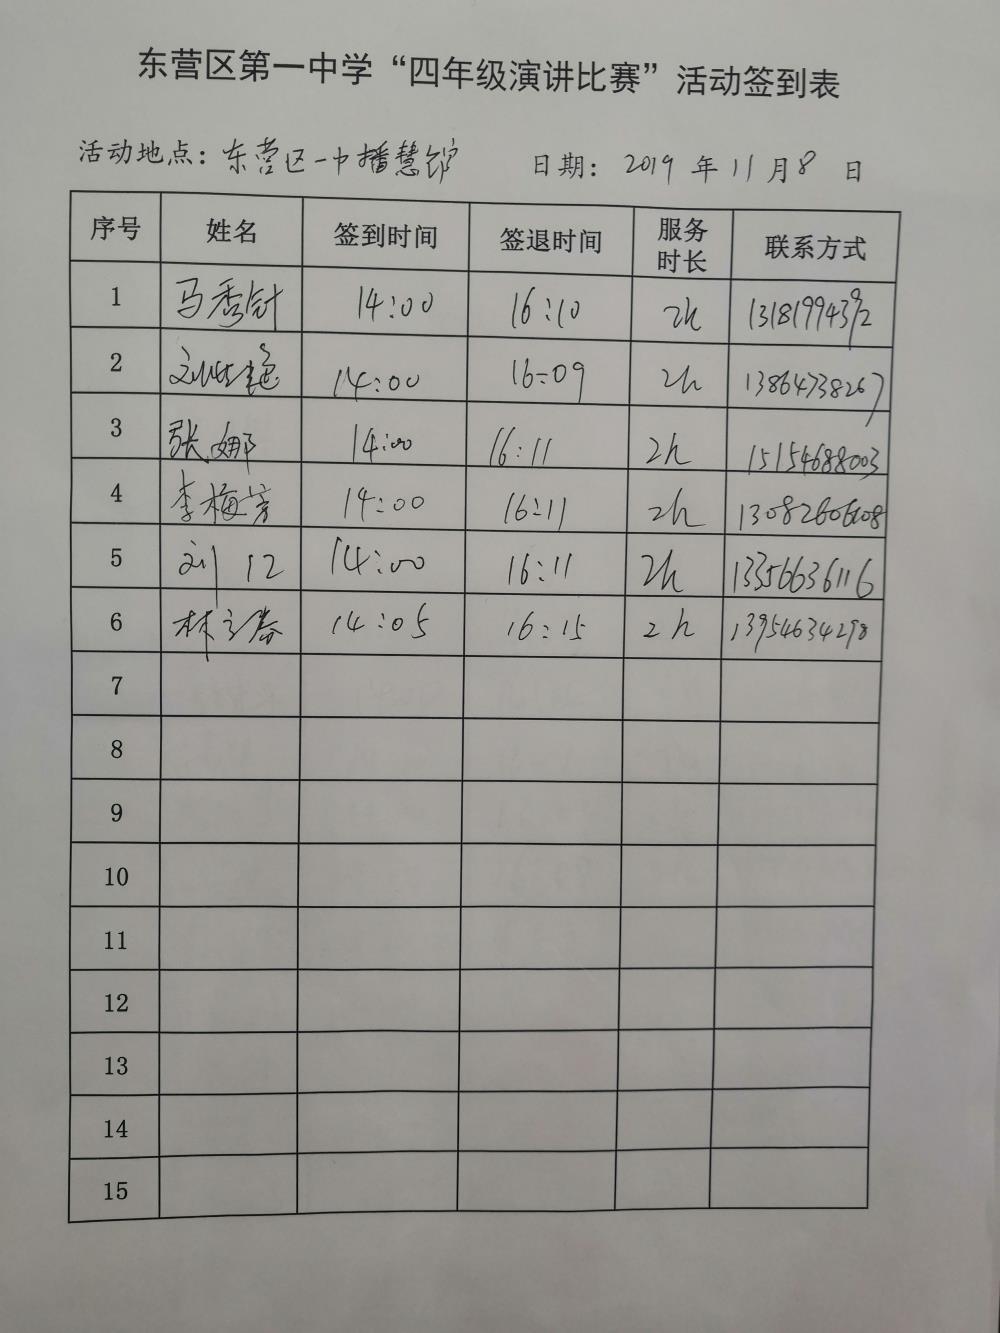 东营区第一中学“四年级演讲比赛”活动签到表
活动地点：东营区一中播慧馆 日期：2019年11月8日
序号 姓名 签到时间 签退时间 服务时长 联系方式
1 马秀针 14:00 16:10 2h 13181994392
2 刘 艳 14:00 16:09 2h 13864738267
3 张娜 14:00 16:11 2h 15154688003
4 李梅芳 14:00 16:11 2h 13082606608
5 刘江 14:00 16:11 2h 13356636116
6 林立春 14:05 16:15 2h 13954634298
7
8
9
10
11
12
13
14
15